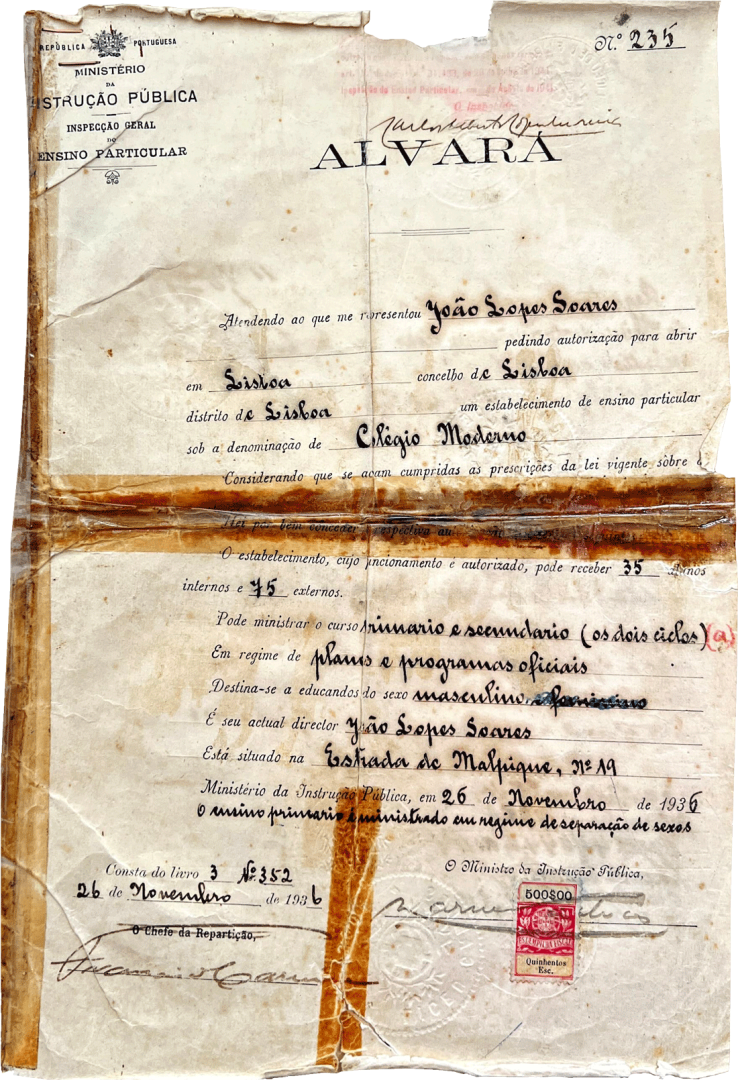 REPÚBLICA PORTUGUESA
Nº 235
MINISTÉRIO
DA
INSTRUÇÃO PÚBLICA
INSPECÇÃO GERAL
DO
ENSINO PARTICULAR
ALVARÁ
Atendendo ao que me representou João Lopes Soares
pedindo autorização para abrir
em Lisboa concelho de Lisboa
distrito de Lisboa um estabelecimento de ensino particular
sob a denominação de Colégio Moderno
Considerando que se acam cumpridas as prescrições da lei vigente sôbre
Hei por bem conceder respectiva
O estabelecimento, cujo funcionamento é autorizado, pode receber 35 alunos
internos e 75 externos.
Pode ministrar o curso primario e secundario (os dois ciclos) (a)
Em regime de planos e programas oficiais
Destina-se a educandos do sexo masculino e feminino
É seu actual director João Lopes Soares
Está situado na Estrada de Malpique, nº 19
Ministério da Instrução Pública, em 26 de Novembro de 1936
O ensino primario é ministrado em regime de separação de sexos
Consta do livro 3 Nº 352
26 de Novembro de 1936
O Chefe da Repartição,
O Ministro da Instrução Pública,
500$00
ESTAMPILHA FISCAL
Quinhentos
Esc.